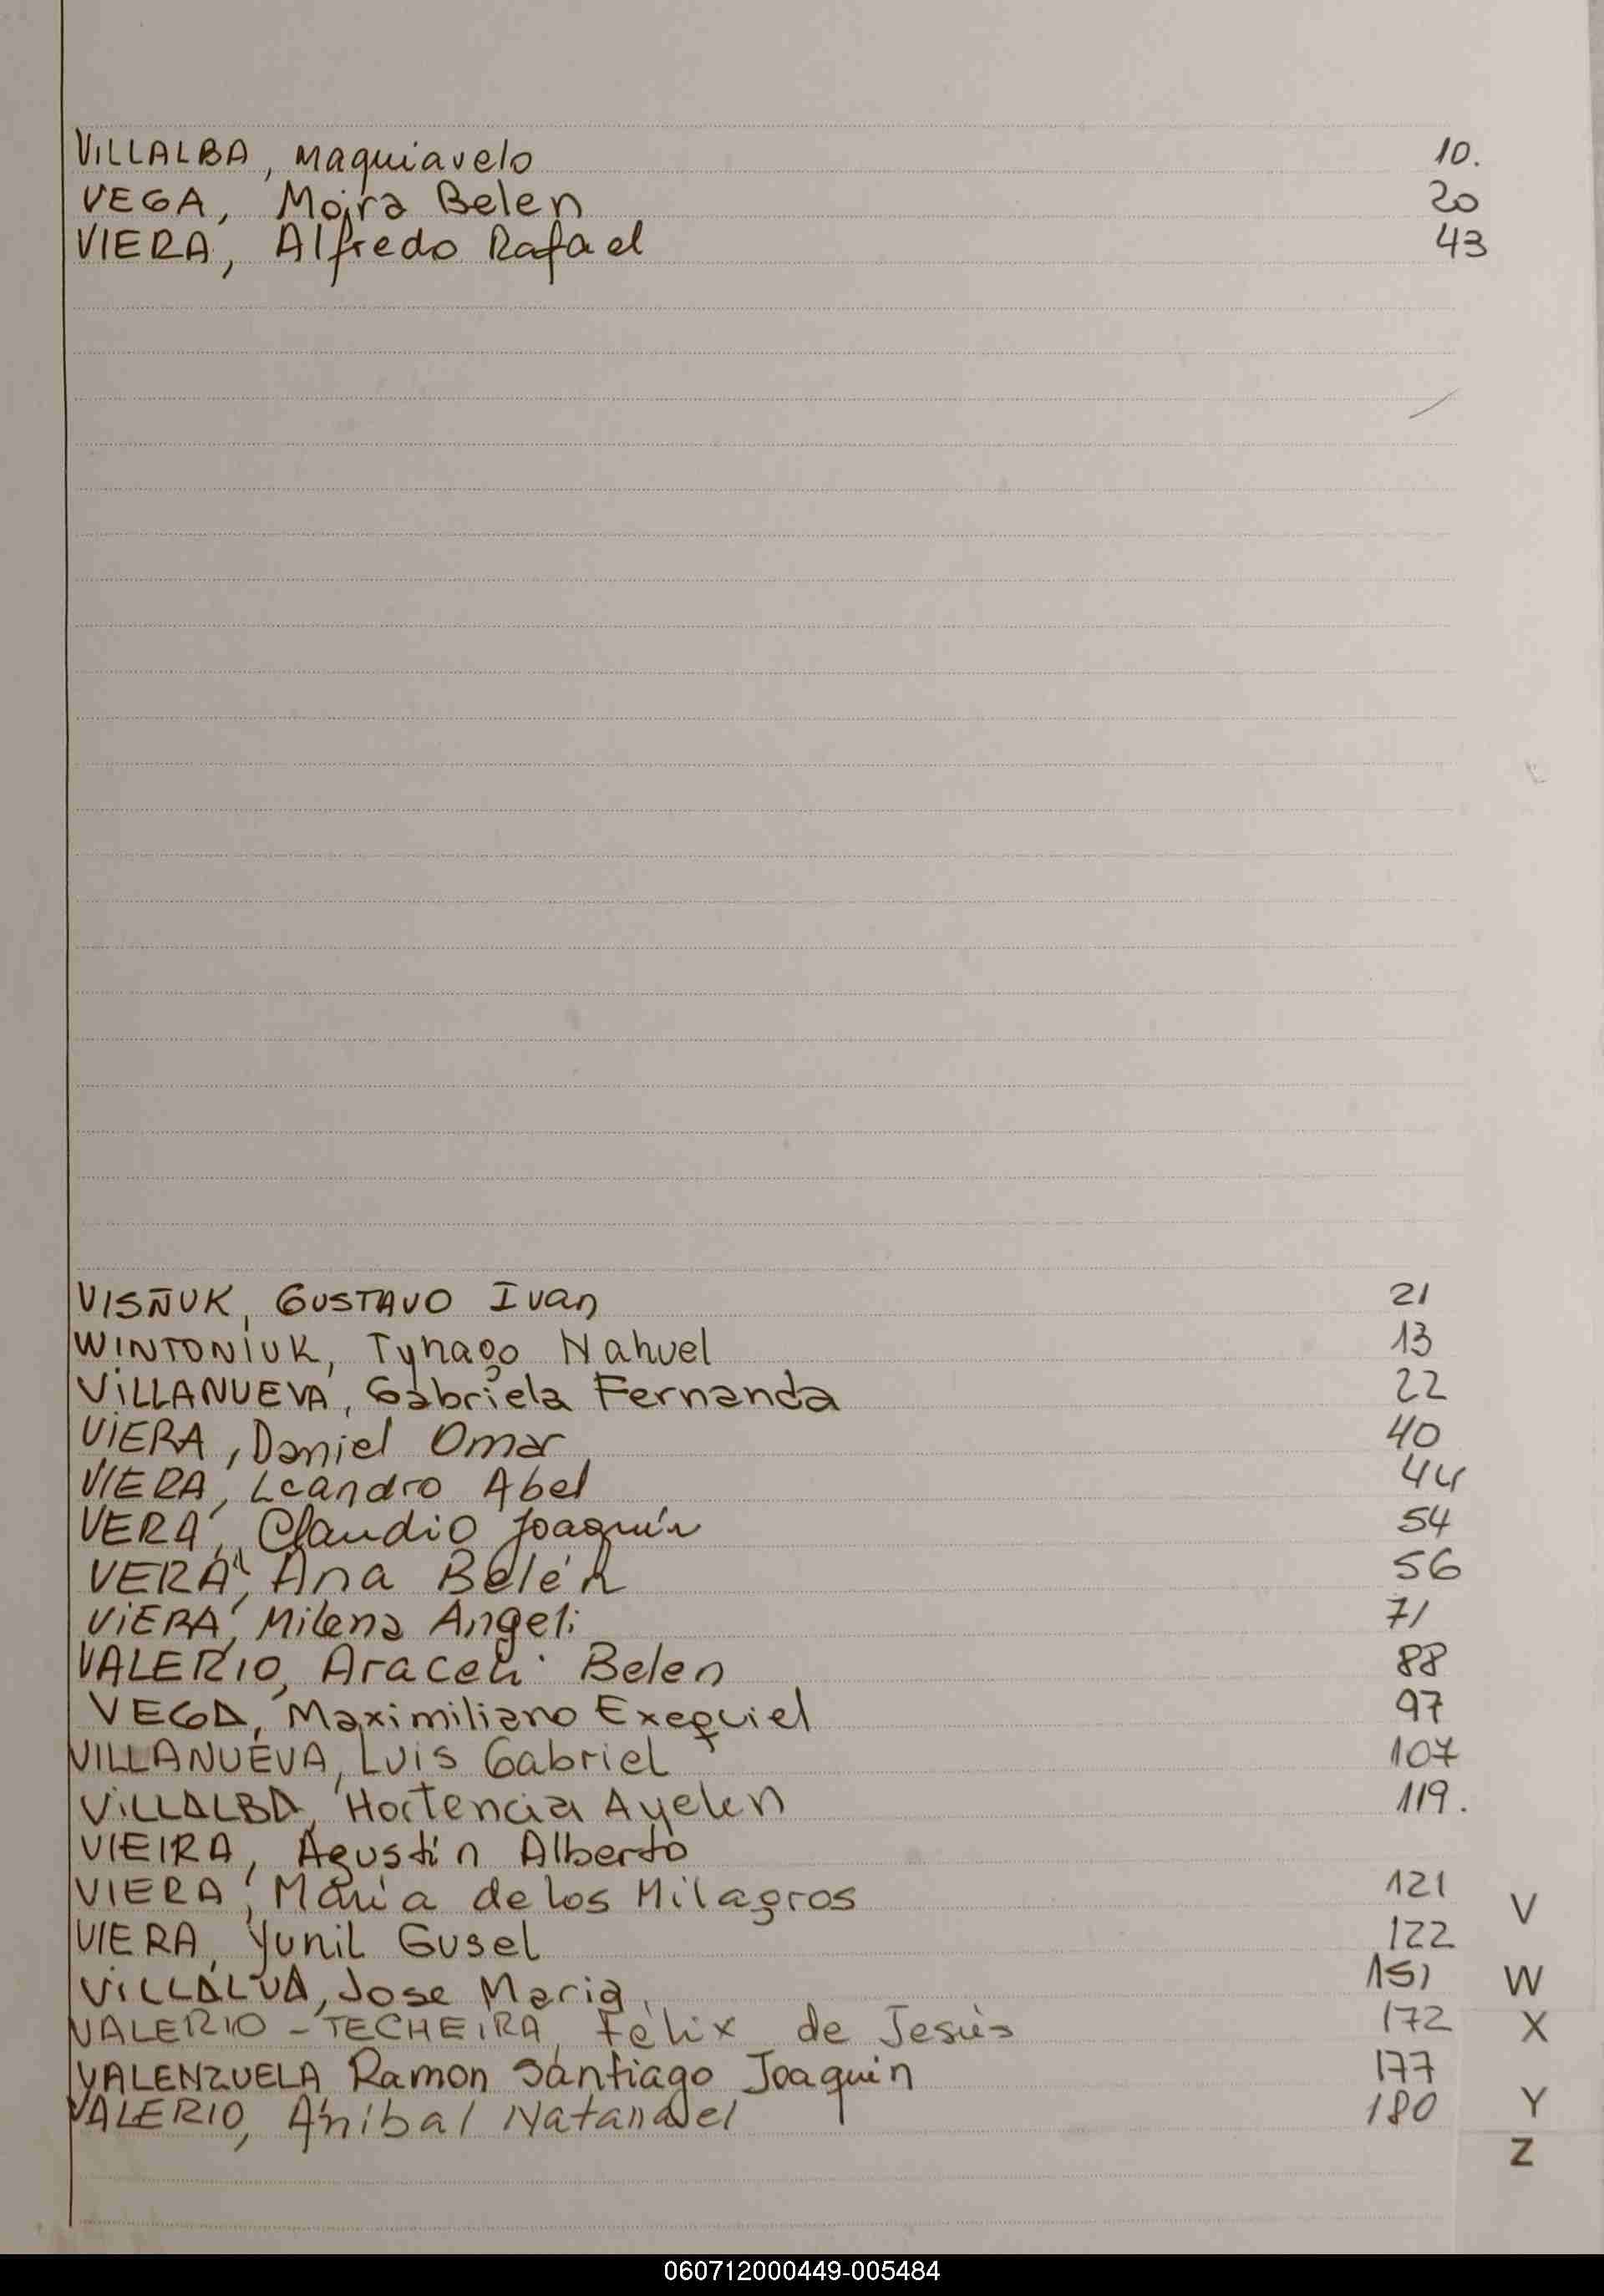 VILLALBA, Maquiavelo 10.
VEGA, Moira Belen 20
VIERA, Alfredo Rafael 43
VISÑUK, GUSTAVO Ivan 21
WINTONIUK, Tynago Nahuel 13
VILLANUEVA, Gabriela Fernanda 22
VIERA, Daniel Omar 40
VIERA, Leandro Abel 44
VERA, Claudio Joaquín 54
VERA, Ana Belén 56
VIERA, Milena Angeli 71
VALERIO, Araceli Belen 88
VEGA, Maximiliano Exequiel 97
VILLANUEVA, Luis Gabriel 107
VILLALBA, Hortencia Ayelen 119.
VIEIRA, Agustín Alberto
VIERA, María de los Milagros 121
V
VIERA, Yunil Gusel 122
VILLALVA, Jose Maria 151
W
VALERIO - TECHEIRA, Félix de Jesús 172
X
VALENZUELA Ramon Santiago Joaquin 177
VALERIO, Anibal Natanael 180
Y
Z
060712000449-005484